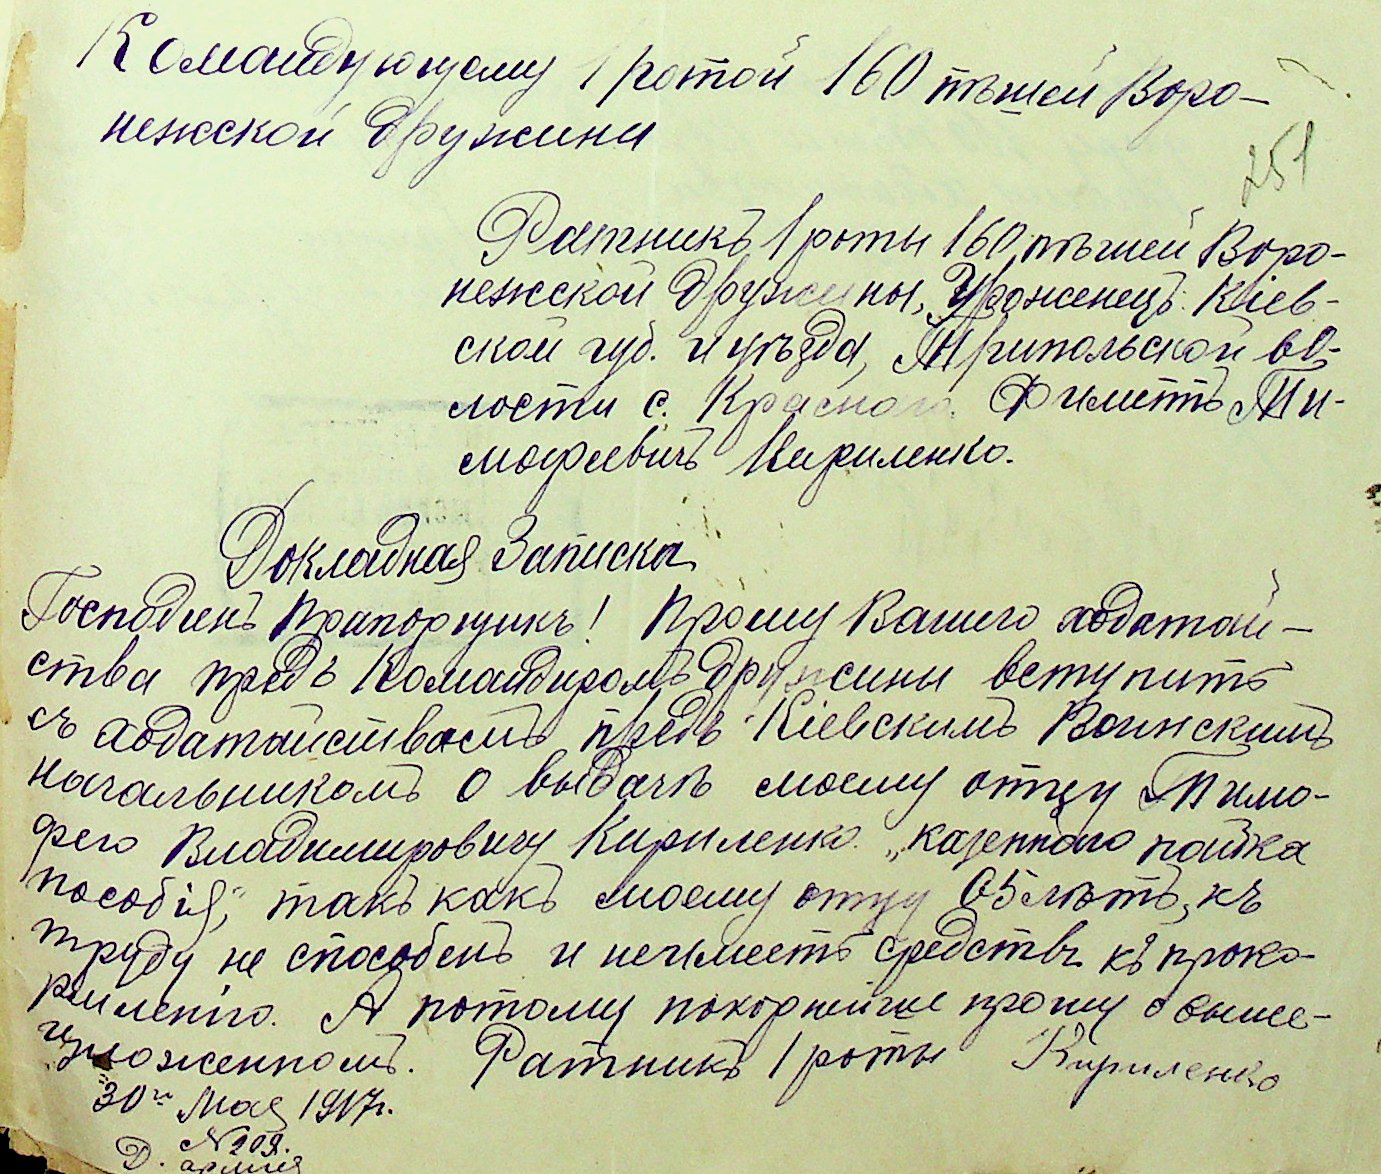 Командующему 1 ротой 160 пѣшей Воро-
нежской дружини
251
Ратникъ 1 роты 160 пѣшей Воро-
нежской дружины, Уроженецъ Кіев-
ской губ. и уѣзда, Трипольской во-
лости с. Красного Филиппъ Ти-
мофеевичъ Кириленко.
Докладная Записка
Господинъ Прапорщикъ! Прошу Вашего ходатай-
ства предъ Командиромъ дружины вступить
съ ходатайствомъ предъ Кіевскимъ Воинскимъ
начальникомъ о выдачѣ моему отцу Тимо-
фею Владимировичу Кириленко „казеннаго пайка
пособія," такъ какъ моему отцу 65 лѣтъ, къ
труду не способенъ и неимеетъ средствъ къ проко-
рмленію. А потому покорнейше прошу о выше-
изложенномъ. Ратникъ 1 роты Кириленко
30го Мая 1917г.
№ 209.
Д. армия